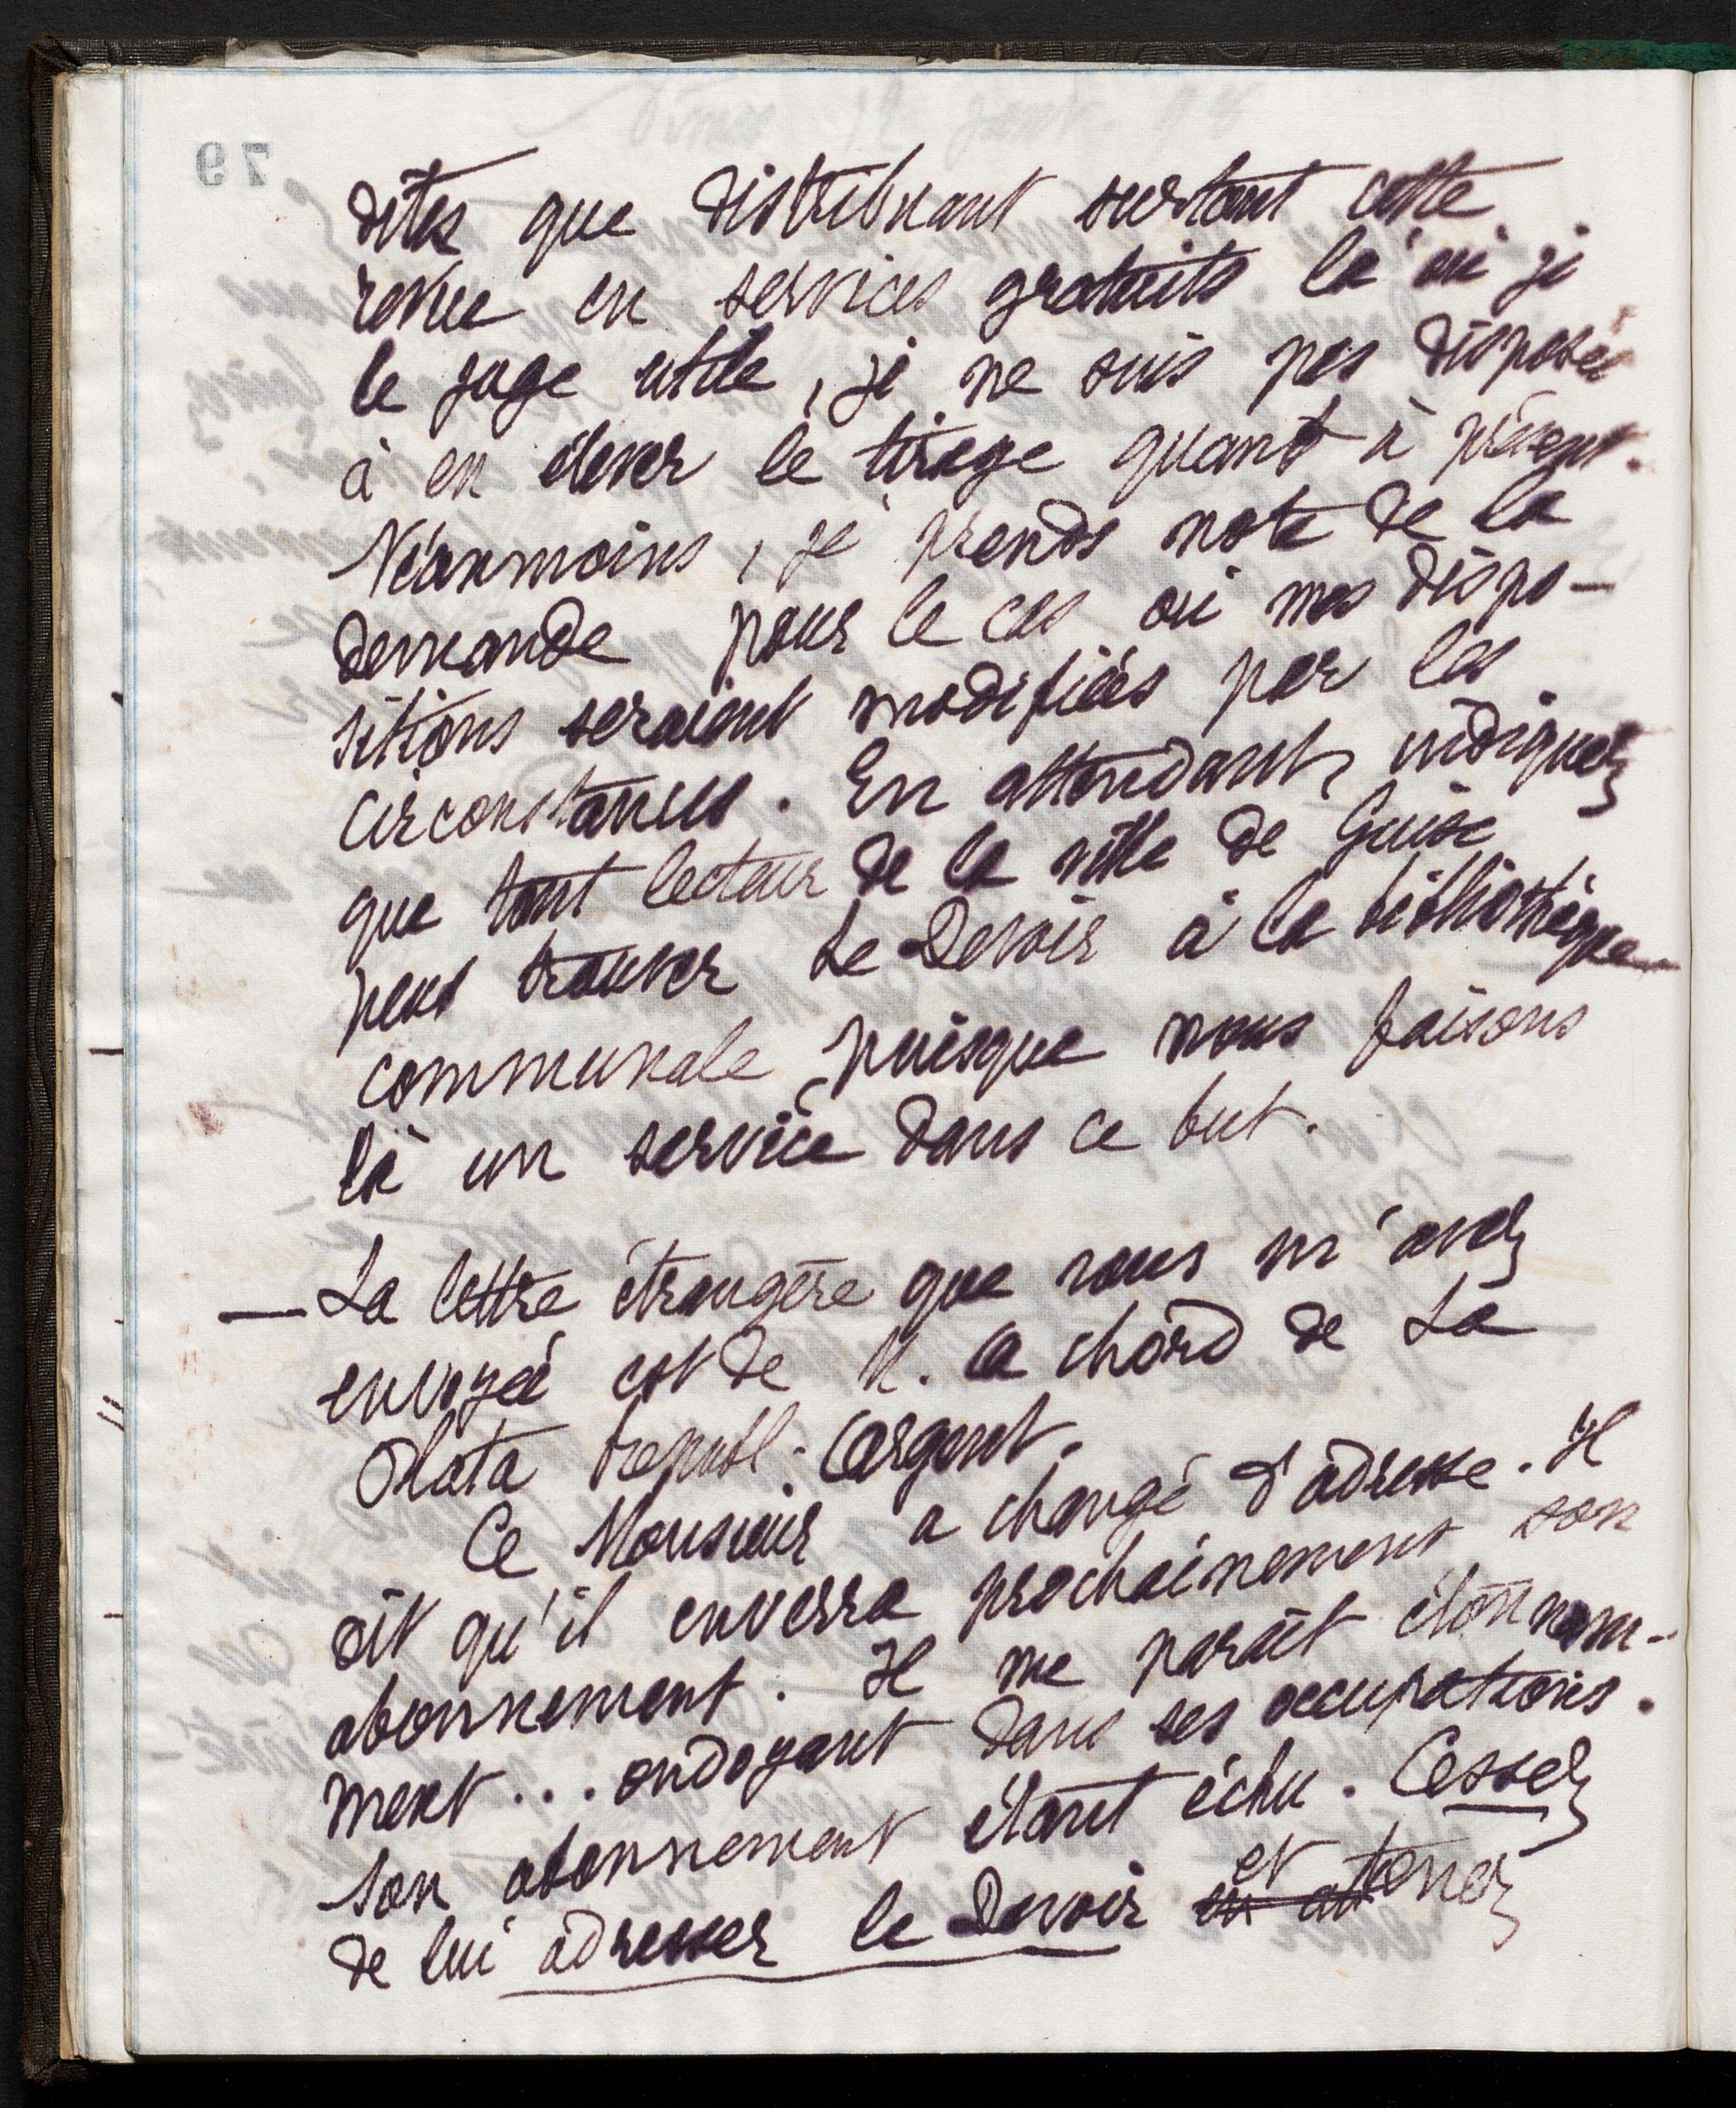 dites que distribuant surtout cette
revue en services gratuits là où je
le juge utile, je ne suis pas disposée
à en élever le tirage quant à présent.
Néanmoins, je prends note de la
demande pour le cas où mes dispo-
sitions seraient modifiées par les
circonstances. En attendant, indiquez
que tout lecteur de la ville de Guise
peut trouver Le Devoir à la bibliothèque
communale puisque nous faisons
là un service dans ce but.
— La lettre étrangère que vous m'avez
envoyée est de M. Achord de La
Plata républ. Argent.
Ce Monsieur a changé d'adresse. Il
dit qu'il enverra prochainement son
abonnement. Il me paraît étonnam-
ment... ondoyant dans ses occupations.
Son abonnement étant échu. Cessez
de lui adresser le Devoir et tenez